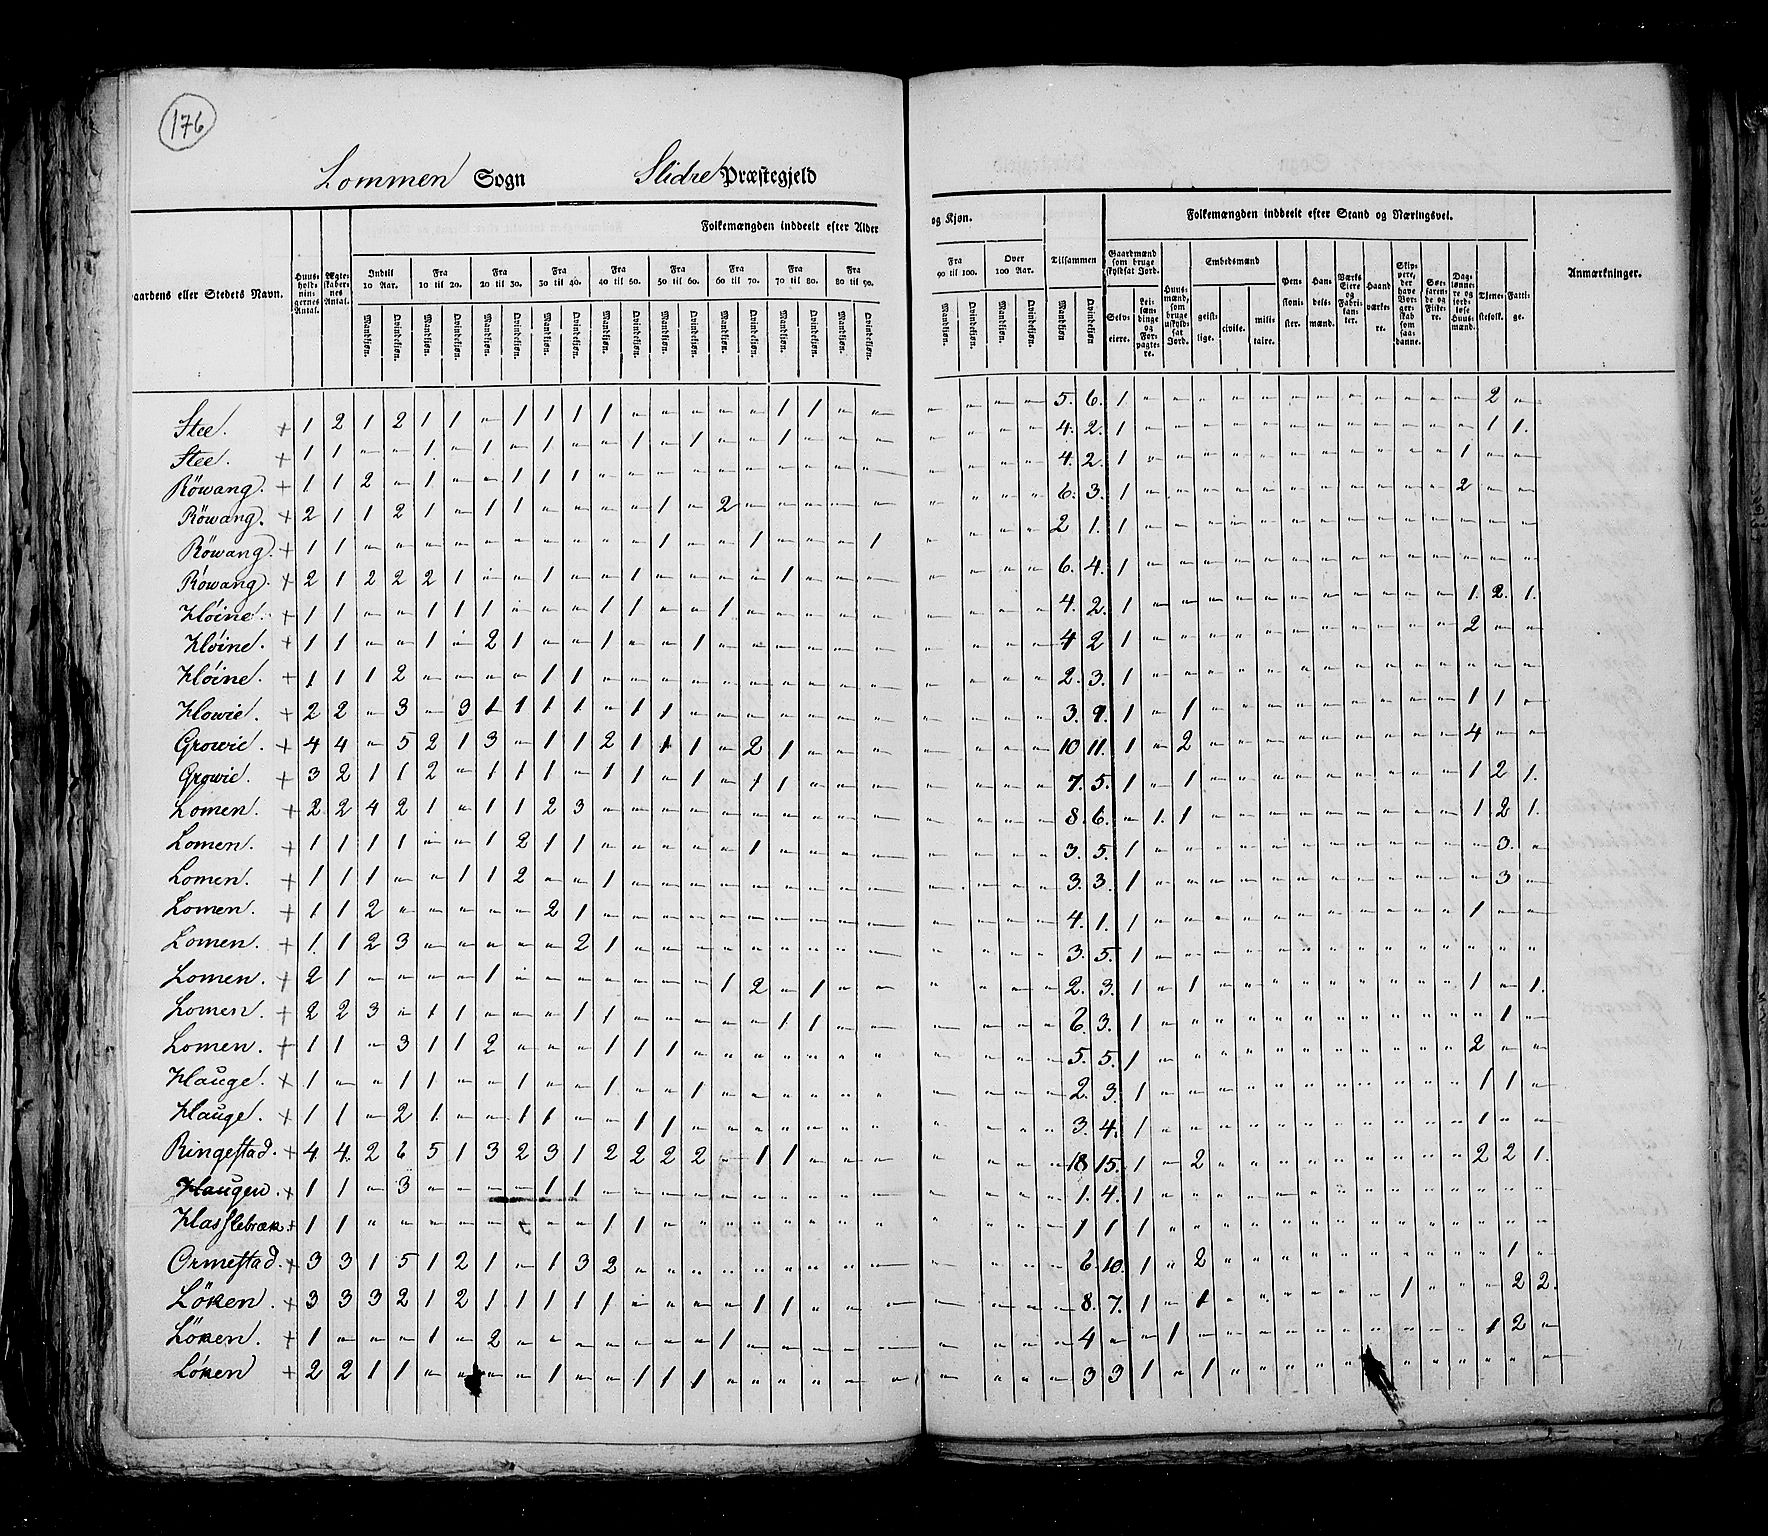 176
Lommen Sogn Slidre Præstegjeld
Folkemængden inddeelt efter Alder og Kjøn. Tilsammen Folkemængden inddeelt efter Stand og Næringsvei. Anmærkninger.
aardens eller Stedets Navn. Huus-hold-nin-gernes Antal. Ægte-skaber-nes Antal. Indtil 10 Aar. Fra 10 til 20. Fra 20 til 30. Fra 30 til 40. Fra 40 til 50. Fra 50 til 60. Fra 60 til 70. Fra 70 til 80. Fra 80 til 90. Fra 90 til 100. Over 100 Aar.
Mandkjøn. Qvindekjøn.
Gaardmænd som bruge skyldsat Jord. Selv-eiere. Lei-læn-dinge og For-pagte-re. Huus-mænd, som bruge uskyld-sat Jord. Embedsmænd geist-lige. civile. mili-taire. Pen-sioni-ster. Han-dels-mænd. Værks Eiere og Fabri-kan-ter. Haand værke-re. Skip-pere, der have Bor-ger-skab som saa-danne. Søe-farende og Fiske-re. Dag-lønne-re og jord-løse Huus-mænd. Tjene-stefolk. Fatti-ge.
Stee. + 1 2 1 2 1 1 - 1 1 1 1 - - - - - 1 1 - - - - - - 5. 6. 1 - - - - - - - - - - - - 2 -
Stee. + 1 1 - - 1 - 1 - 1 - 1 - 1 - - 1 - - - - - - - - 4. 2. 1 - - - - - - - - - - - - 1 1.
Röwang. + 1 1 2 - 1 - - 1 1 1 - - - - - - - - - - - - - - 4. 2. 1 - - - - - - - - - - - 1 - -
Röwang. + 2 1 1 2 1 - 1 1 - - - - 1 - 2 - - - - - - - - - 6. 3. 1 - - - - - - - - - - - 2 - -
Röwang. + 1 1 - - - - - - - - - - 1 - - 1 - - - 1 - - - - 2 1. 1 - - - - - - - - - - - - - -
Röwang. + 2 1 2 2 2 1 - - 1 - - 1 - - - - 1 - - - - - - - 6. 4. 1 - - - - - - - - - - - - - -
Höine. + 1 1 - - 1 1 1 - - - 1 1 - - 1 - - - - - - - - - 4. 2. 1 - - - - - - - - - - - 1. 2. 1.
Höine. + 1 1 - - 1 - 2 1 - - 1 - - 1 - - - - - - - - - - 4 2 1 - - - - - - - - - - - 2 - -
Höine. + 1 1 1 2 - - - - 1 1 - - - - - - - - - - - - - - 2. 3. 1 - - - - - - - - - - - - - -
Howie. + 2 2 - 3 - 3 1 1 1 1 - 1 1 - - - - - - - - - - - 3. 9. 1 - 1 - - - - - - - - - 1 1 -
Growie. + 4 4 - 5 2 1 3 - 1 1 2 1 1 1 - 2 1 - - - - - - - 10 11. 1 - 2 - - - - - - - - - 4 - -
Growie. + 3 2 1 1 2 - 1 1 1 - 1 1 - 1 - 1 1 - - - - - - - 7. 5. 1 - 1 - - - - - - - - - 1 2 1.
Lomen. + 2 2 4 2 1 - 1 1 2 3 - - - - - - - - - - - - - - 8. 6. - 1. 1 - - - - - - - - - 1 2 1.
Lomen. + 1 1 1 1 - - 1 2 1 1 - - - - - 1 - - - - - - - - 3. 5. 1 - - - - - - - - - - - - 3. -
Lomen. + 1 1 1 - - 1 1 2 - - 1 - - - - - - - - - - - - - 3. 3. 1 - - - - - - - - - - - - 3 -
Lomen. + 1 1 2 - - - - - 2 1 - - - - - - - - - - - - - - 4. 1. 1 - - - - - - - - - - - 1 - -
Lomen. + 1 1 2 3 - - - - - 2 1 - - - - - - - - - - - - - 3. 5. 1 - - - - - - - - - - - - - -
Lomen. + 2 1 - - - - 1 - - - - - - - 1 2 - 1 - - - - - - 2. 3. 1 - 1 - - - - - - - - - 1 - 1.
Lomen. + 2 2 3 - 1 1 - - - 1 1 - - - - - 1 1 - - - - - - 6. 3. 1 - - - - - - - - - - - - 1 -
Lomen. + 1 1 - 3 1 1 2 - - - 1 1 1 - - - - - - - - - - - 5. 5. 1 - - - - - - - - - - - 2 - -
Hauge. + 1 - - 1 1 - - 1 - - 1 - - 1 - - - - - - - - - - 2. 3. 1 - - - - - - - - - - - 1 1 -
Hauge. + 1 1 - 2 1. - - 1 1 - - 1 1 - - - - - - - - - - - 3. 4. 1 - - - - - - - - - - - 1 - -
Ringestad. + 4. 4. 2 6 5 1 3 2 3 1 2 2 2 2 - 1 1 - - - - - - - 18 15. 1 - 2 - - - - - - - - - 2 2 1.
Haugen. + 1 1 - 3 - - - - 1 1 - - - - - - - - - - - - - - 1. 4. 1 - - - - - - - - - - - - - -
Hasslebræk + 1 1 - - - - - - - - 1 1 - - - - - - - - - - - - 1 1 1 - - - - - - - - - - - - - -
Ormestad. + 3 3 1 5 1 2 1 - 1 3 2 - - - - - - - - - - - - - 6. 10. 1 - 2 - - - - - - - - - - 1 -
Löken. + 3 3 3 2 1 2 1 1 1 1 1 - - - - 1 1 - - - - - - - 8. 7. 1 - 1 - - - - - - 1 - - - 2 2.
Löken. + 1 - - - 1 - 2 - - - - - - - 1 - - - - - - - - - 4 - - 1 - - - - - - - - - - 1 2 -
Löken + 2 2 1 1 - - - - 1 - - 1 1 1 - - - - - - - - - - 3 3 1 - 1 - - - - - - - - - - - -